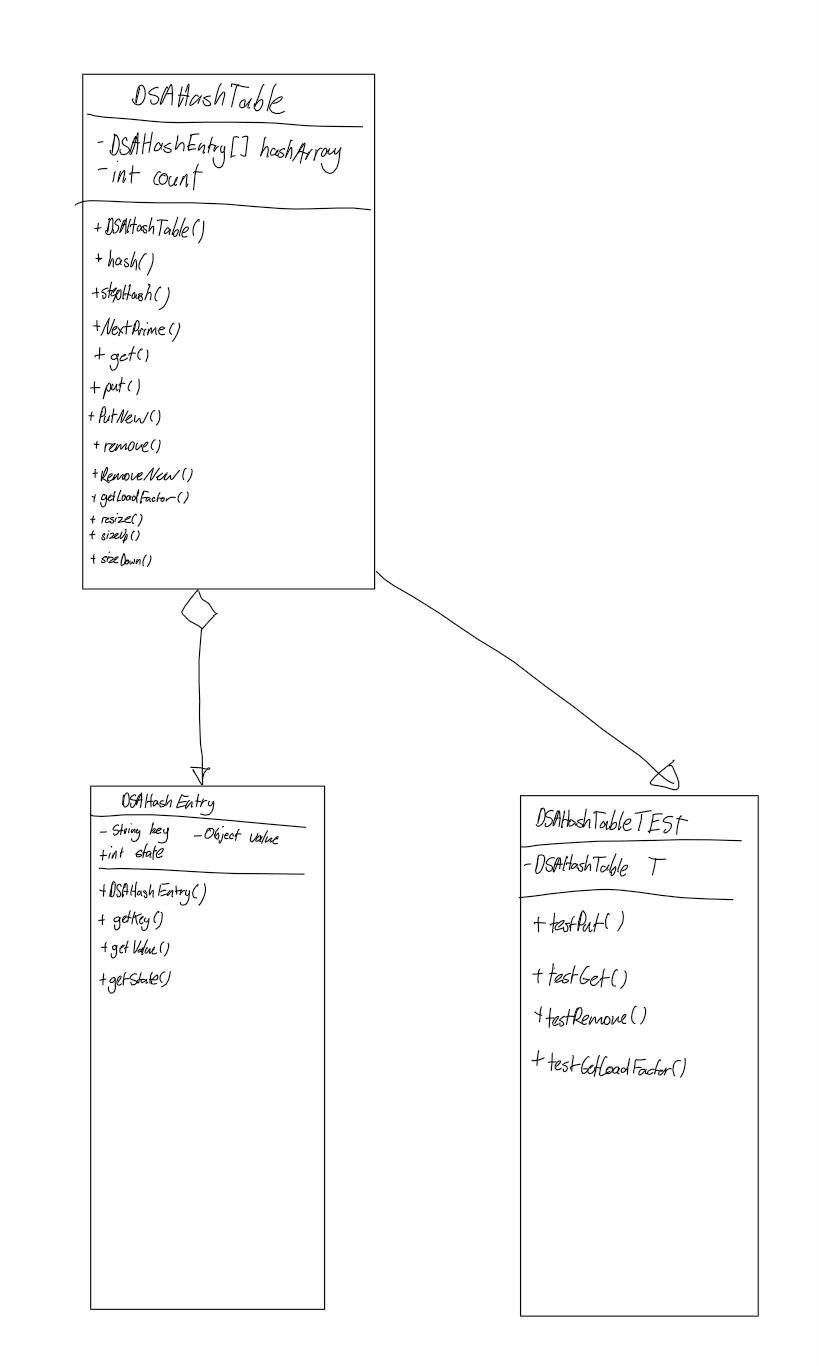 DSAHashTable
- DSAHashEntry[] hashArray
- int count
+ DSAHashTable()
+ hash()
+ stepHash()
+ NextPrime()
+ get()
+ put()
+ PutNew()
+ remove()
+ RemoveNew()
+ getLoadFactor()
+ resize()
+ sizeUp()
+ sizeDown()
DSAHashEntry
- String key - Object value
+ int state
+ DSAHashEntry()
+ getKey()
+ getValue()
+ getState()
DSAHashTableTEST
- DSAHashTable T
+ testPut()
+ testGet()
+ testRemove()
+ testGetLoadFactor()